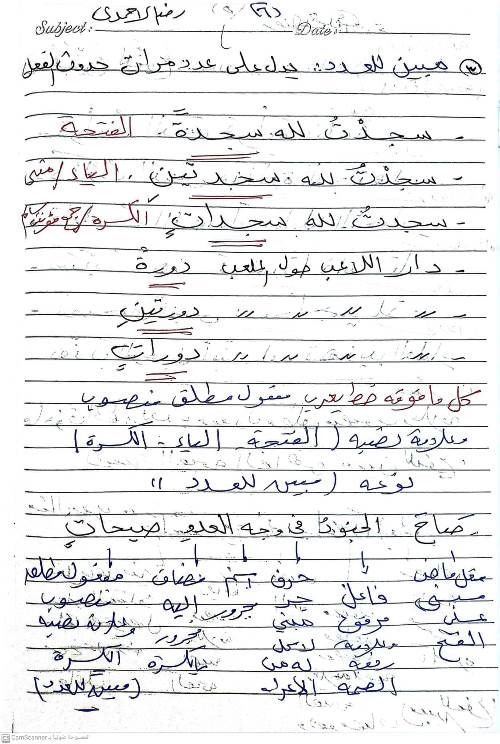 رضا الاحمدي (٢٦)
Subject: Date:
(٣) مبين للعدد: يدل على عدد مرات حدوث الفعل
- سجدْتُ لله سجدةً الفتحة
- سجدْتُ لله سجدتين. الياء/مثنى
- سجدتُ لله سجداتٍ الكسرة/جمع مؤنث سالم
- دار اللاعب حول الملعب دورةً
- 〃 〃 〃 〃 دورتين
- 〃 〃 〃 〃 دوراتٍ
كل ما فوقه خط يعرب مفعول مطلق منصوب
وعلامة نصبه (الفتحة - الياء - الكسرة)
نوعه (مبين للعدد))
- صاحَ الجنودُ في وجه العدو صيحاتٍ
فعل ماض فاعل حرف اسم مضاف مفعول مطلق
مبني مرفوع جر مجرور اليه منصوب
على وعلامة مبني مجرور وعلامة نصبه
الفتح رفعه لا محل بالكسرة الكسرة
الضمة له من الاعراب (مبين للعدد)
CamScanner